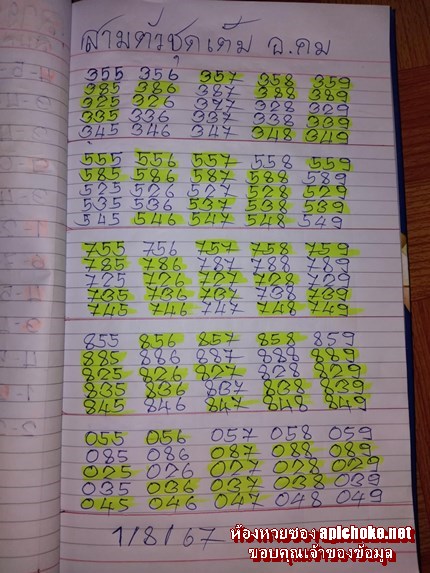 สามตัวชุดเต็ม อ.คม
355 356 357 358 359
385 386 387 388 389
325 326 327 328 329
335 336 337 338 339
345 346 347 348 349
555 556 557 558 559
585 586 587 588 589
525 526 527 528 529
535 536 537 538 539
545 546 547 548 549
755 756 757 758 759
785 786 787 788 789
725 726 727 728 729
735 736 737 738 739
745 746 747 748 749
855 856 857 858 859
885 886 887 888 889
825 826 827 828 829
835 836 837 838 839
845 846 847 848 849
055 056 057 058 059
085 086 087 088 089
025 026 027 028 029
035 036 037 038 039
045 046 047 048 049
1/8/67
ห้องหวยซอง apichoke.net
ขอบคุณเจ้าของข้อมูล